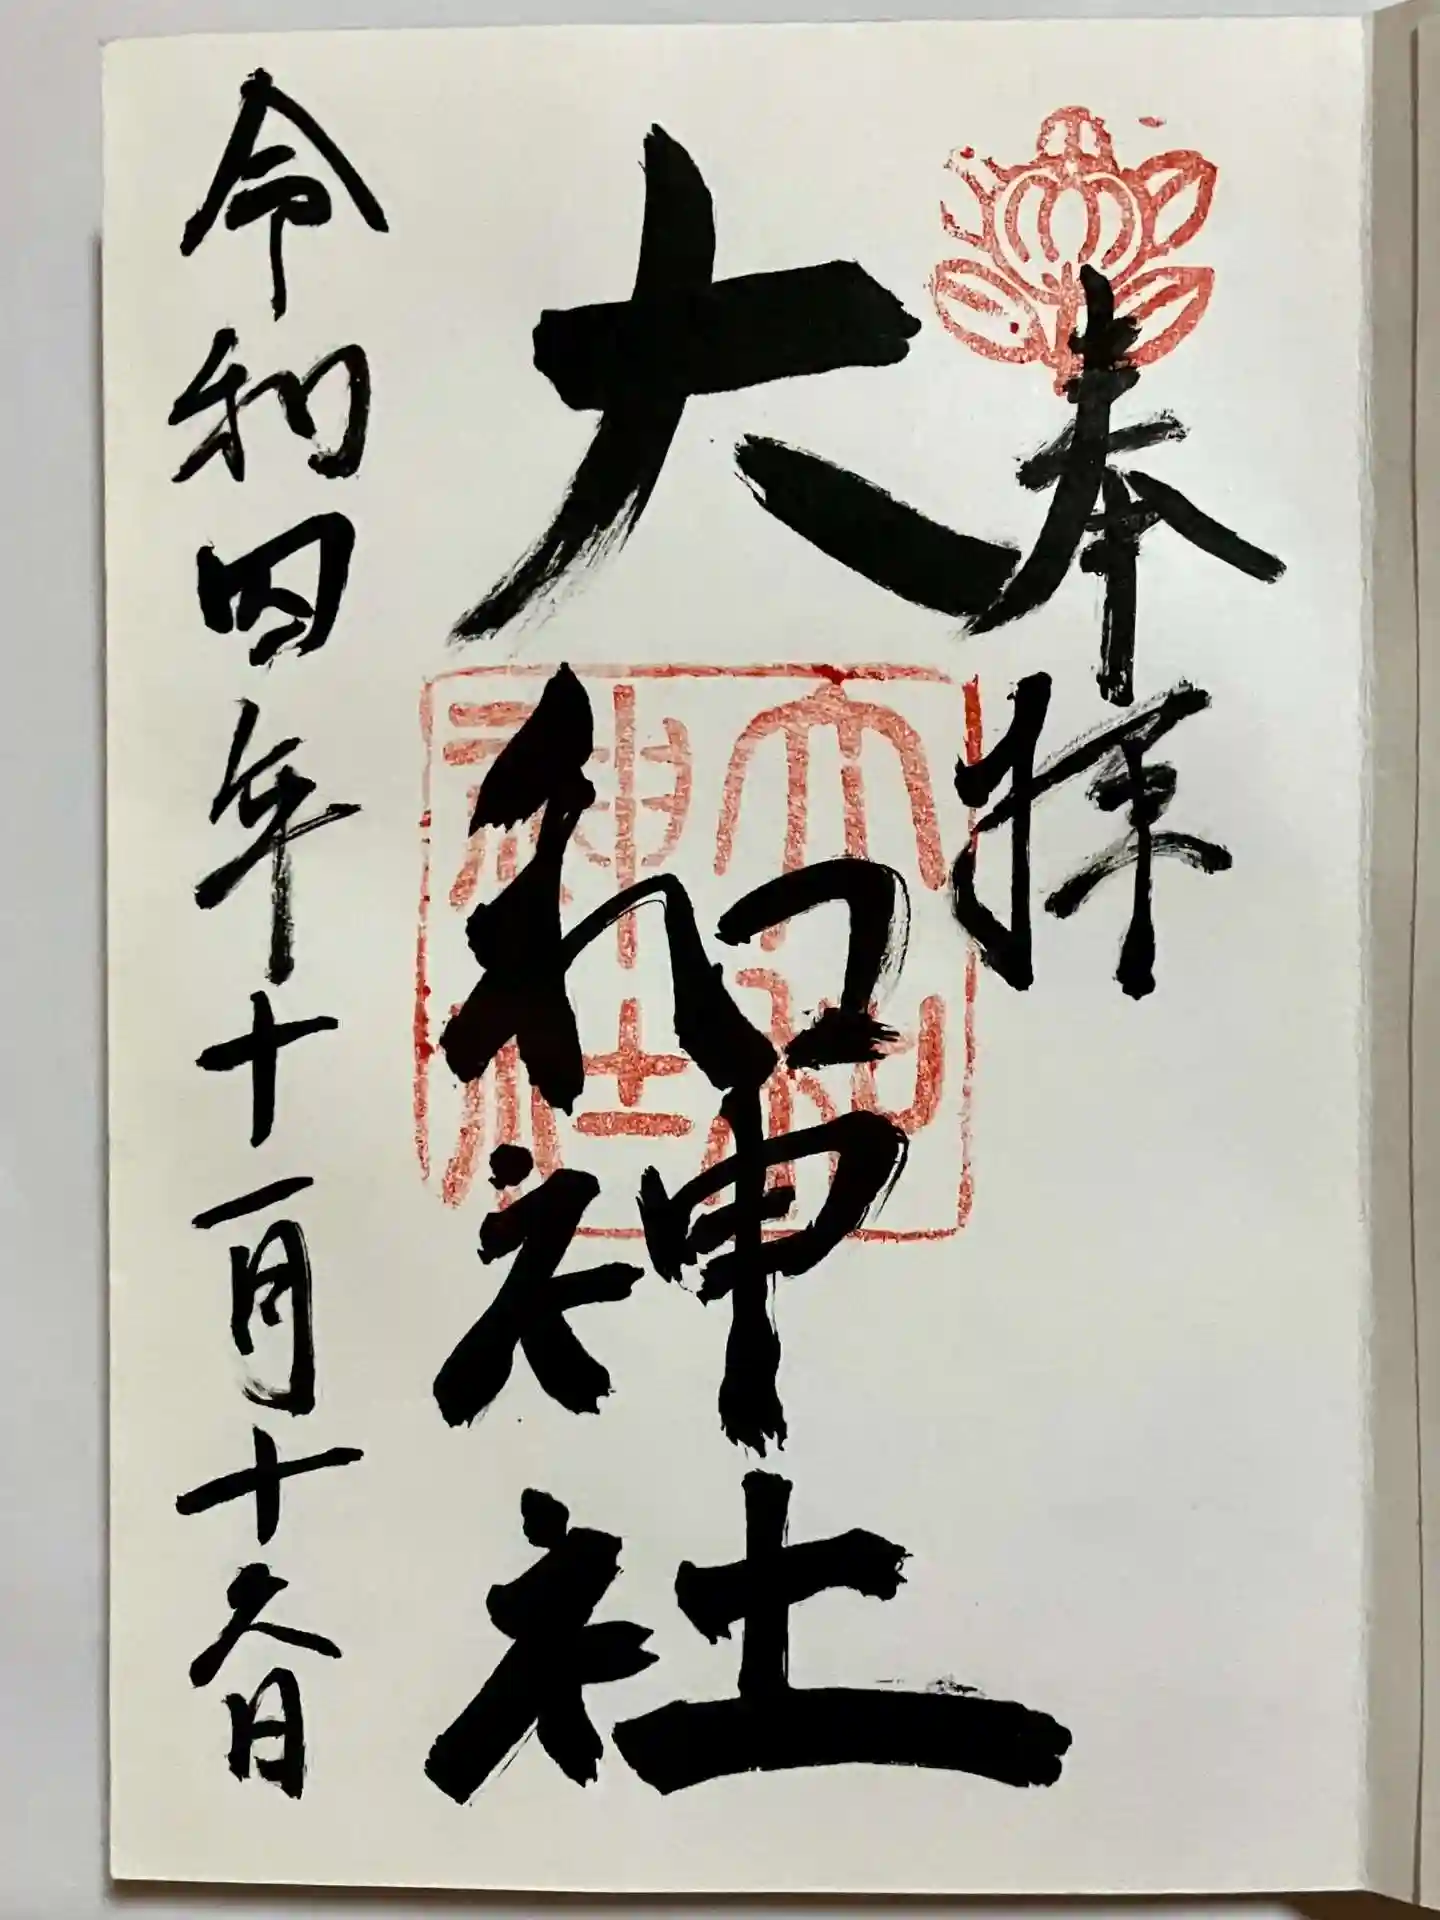 奉拝
大和神社
大和神社
令和四年十一月十六日